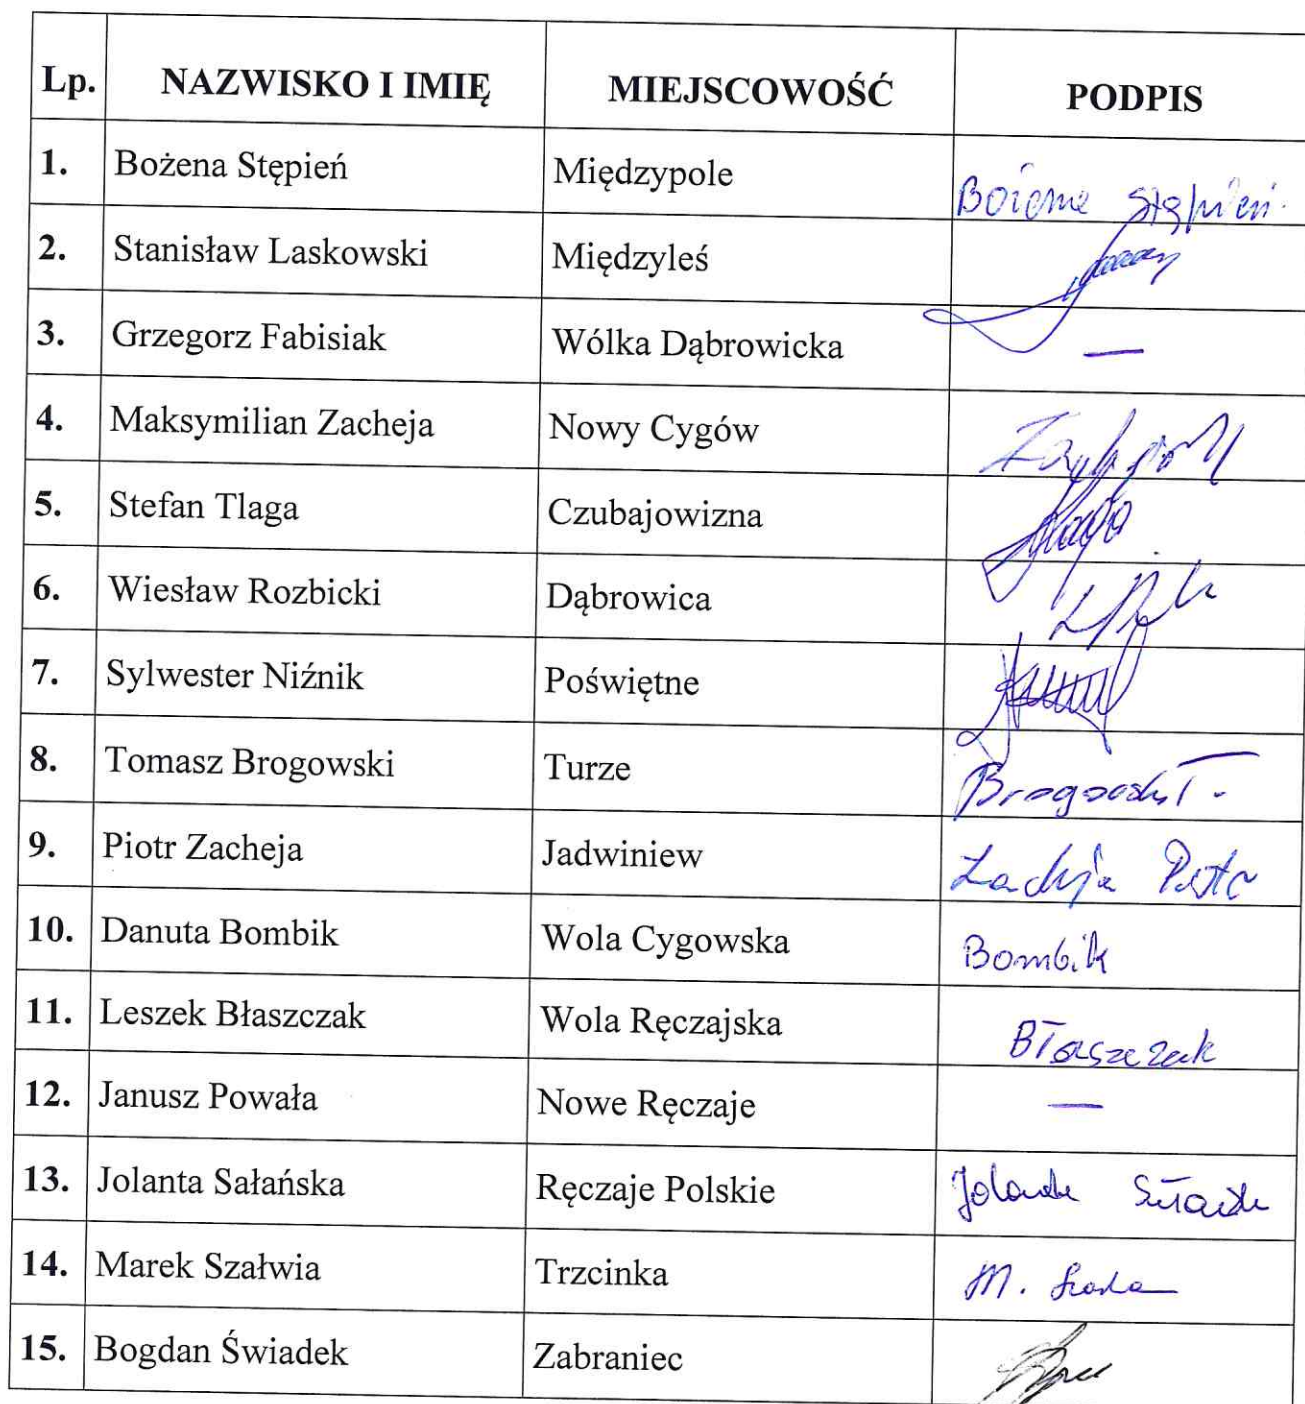 Lp. NAZWISKO I IMIĘ MIEJSCOWOŚĆ PODPIS
1. Bożena Stępień Międzypole Bożena Stępień
2. Stanisław Laskowski Międzyleś
3. Grzegorz Fabisiak Wólka Dąbrowicka —
4. Maksymilian Zacheja Nowy Cygów
5. Stefan Tlaga Czubajowizna
6. Wiesław Rozbicki Dąbrowica
7. Sylwester Niźnik Poświętne
8. Tomasz Brogowski Turze
9. Piotr Zacheja Jadwiniew Zacheja Piotr
10. Danuta Bombik Wola Cygowska Bombik
11. Leszek Błaszczak Wola Ręczajska Błaszczak
12. Janusz Powała Nowe Ręczaje —
13. Jolanta Sałańska Ręczaje Polskie Jolanta
14. Marek Szałwia Trzcinka M.
15. Bogdan Świadek Zabraniec